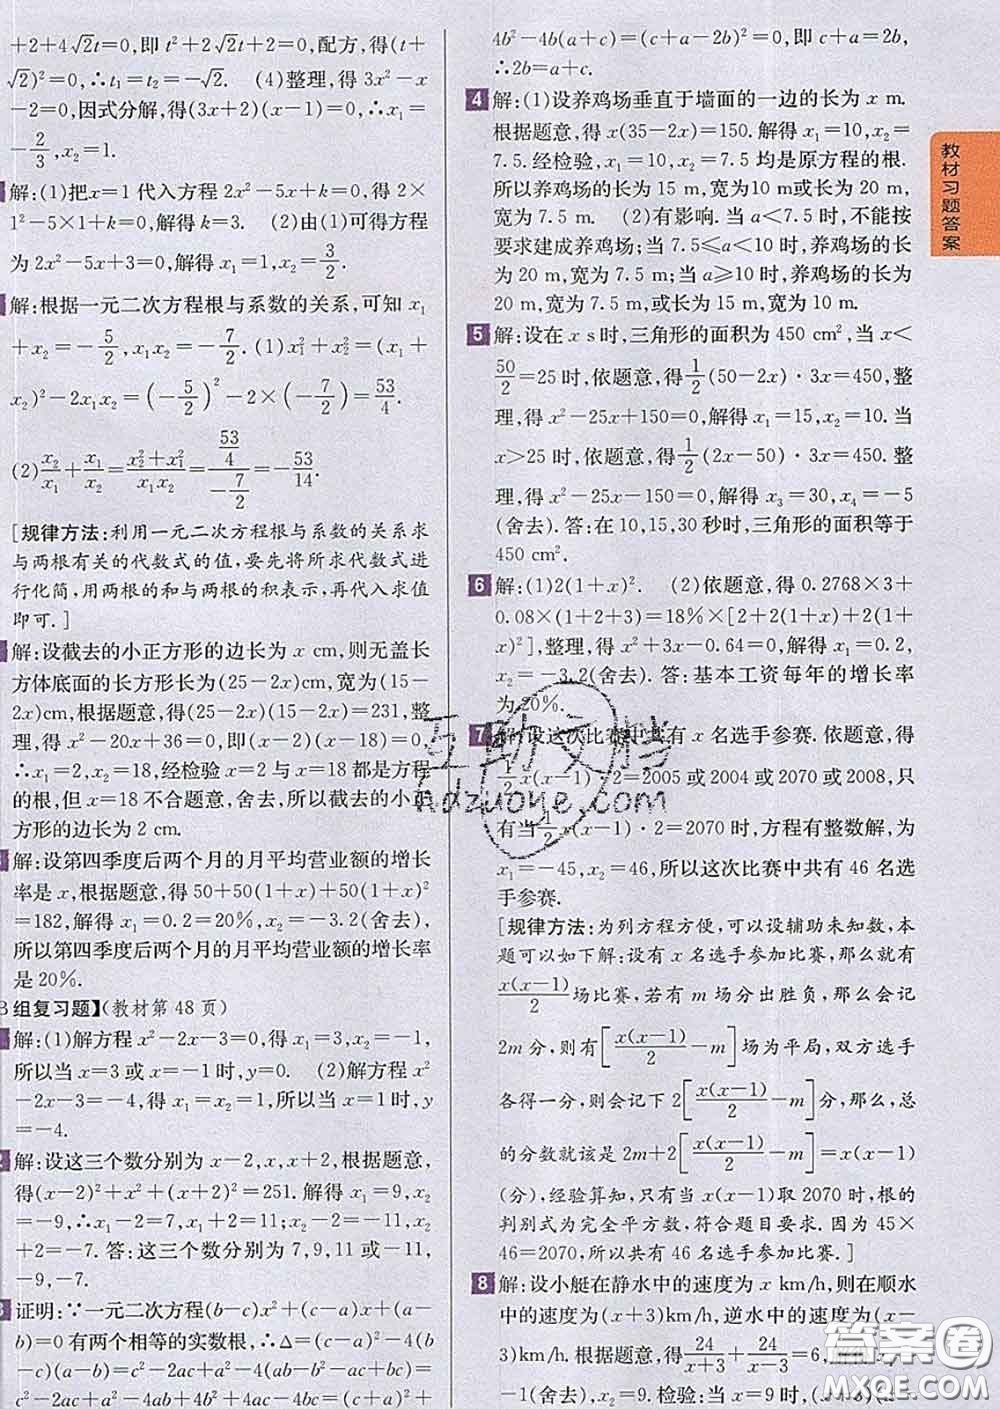 +2+4√2t=0,即 t²+2√2t+2=0,配方,得(t+
√2)²=0,∴t₁=t₂=-√2. (4)整理,得 3x²-x
-2=0,因式分解,得(3x+2)(x-1)=0,∴x₁=
-2/3,x₂=1.
解:(1)把x=1 代入方程 2x²-5x+k=0,得 2×
1²-5×1+k=0,解得 k=3. (2)由(1)可得方程
为 2x²-5x+3=0,解得 x₁=1,x₂=3/2.
解:根据一元二次方程根与系数的关系,可知 x₁
+x₂=-5/2,x₁x₂=-7/2. (1)x₁²+x₂²=(x₁+
x₂)²-2x₁x₂=(-5/2)²-2×(-7/2)=53/4.
(2)x₂/x₁+x₁/x₂=(x₂²+x₁²)/(x₁x₂)=(53/4)/(-7/2)=-53/14.
[规律方法:利用一元二次方程根与系数的关系求
与两根有关的代数式的值,要先将所求代数式进
行化简,用两根的和与两根的积表示,再代入求值
即可.]
解:设截去的小正方形的边长为 x cm,则无盖长
方体底面的长方形长为(25-2x)cm,宽为(15-
2x)cm,根据题意,得(25-2x)(15-2x)=231,整
理,得 x²-20x+36=0,即(x-2)(x-18)=0,
∴x₁=2,x₂=18,经检验 x=2 与 x=18 都是方程
的根,但 x=18 不合题意,舍去,所以截去的小正
方形的边长为 2 cm.
解:设第四季度后两个月的月平均营业额的增长
率是 x,根据题意,得 50+50(1+x)+50(1+x)²
=182,解得 x₁=0.2=20%,x₂=-3.2(舍去),
所以第四季度后两个月的月平均营业额的增长率
是 20%.
B 组复习题】(教材第 48 页)
解:(1)解方程 x²-2x-3=0,得 x₁=3,x₂=-1,
所以当 x=3或 x=-1时,y=0. (2)解方程 x²
-2x-3=-4,得 x₁=x₂=1,所以当 x=1 时,y
=-4.
2 解:设这三个数分别为 x-2,x,x+2,根据题意,
得(x-2)²+x²+(x+2)²=251. 解得 x₁=9,x₂
=-9,∴x₁-2=7,x₁+2=11;x₂-2=-11,x₂
+2=-7. 答:这三个数分别为 7,9,11 或-11,
-9,-7.
3 证明:∵一元二次方程(b-c)x²+(c-a)x+(a-
b)=0 有两个相等的实数根,∴Δ=(c-a)²-4(b
-c)(a-b)=c²-2ac+a²-4(ab-b²-ac+bc)=
c²-2ac+a²-4ab+4b²+4ac-4bc=(a+c)²+
4b²-4b(a+c)=(c+a-2b)²=0,即 c+a=2b,
∴2b=a+c.
4 解:(1)设养鸡场垂直于墙面的一边的长为 x m.
根据题意,得 x(35-2x)=150. 解得 x₁=10,x₂=
7.5. 经检验,x₁=10,x₂=7.5 均是原方程的根.
所以养鸡场的长为 15 m,宽为10m或长为 20 m,
宽为 7.5 m. (2)有影响. 当 a<7.5 时,不能按
要求建成养鸡场;当 7.5≤a<10 时,养鸡场的长
为 20 m,宽为 7.5 m;当 a≥10 时,养鸡场的长为
20 m,宽为 7.5 m 或长为 15 m,宽为 10 m.
5 解:设在 x s时,三角形的面积为 450 cm²,当 x<
50/2=25 时,依题意,得1/2(50-2x)·3x=450,整
理,得 x²-25x+150=0,解得 x₁=15,x₂=10. 当
x>25 时,依题意,得1/2(2x-50)·3x=450. 整
理,得 x²-25x-150=0,解得 x₃=30,x₄=-5
(舍去). 答:在 10,15,30 秒时,三角形的面积等于
450 cm².
6 解:(1)2(1+x)². (2)依题意,得 0.2768×3+
0.08×(1+2+3)=18%×[2+2(1+x)+2(1+
x)²],整理,得 x²+3x-0.64=0,解得 x₁=0.2,
x₂=-3.2(舍去). 答:基本工资每年的增长率
为 20%.
7 解:设这次比赛中共有 x 名选手参赛. 依题意,得
1/2x(x-1)·2=2005 或 2004 或 2070 或 2008,只
有当1/2x(x-1)·2=2070 时,方程有整数解,为
x₁=-45,x₂=46,所以这次比赛中共有 46 名选
手参赛.
[规律方法:为列方程方便,可以设辅助未知数,本
题可以如下解:设有 x 名选手参加比赛,那么就有
x(x-1)/2场比赛,若有 m 场分出胜负,那么会记
2m 分,则有[x(x-1)/2-m]场为平局,双方选手
各得一分,则会记下 2[x(x-1)/2-m]分,那么,总
的分数就该是 2m+2[x(x-1)/2-m]=x(x-1)
(分),经验算知,只有当 x(x-1)取 2070 时,根的
判别式为完全平方数,符合题目要求. 因为 45×
46=2070,所以共有 46 名选手参加比赛.]
8 解:设小艇在静水中的速度为 x km/h,则在顺水
中的速度为(x+3)km/h,逆水中的速度为(x-
3)km/h. 根据题意,得24/(x+3)+24/(x-3)=6,
-1(舍去),x₂=9. 检验:当 x=9 时,(x+3)(x-
教材习题答案
互助文档
hdzuoye.com
答案圈
MXQE.COM